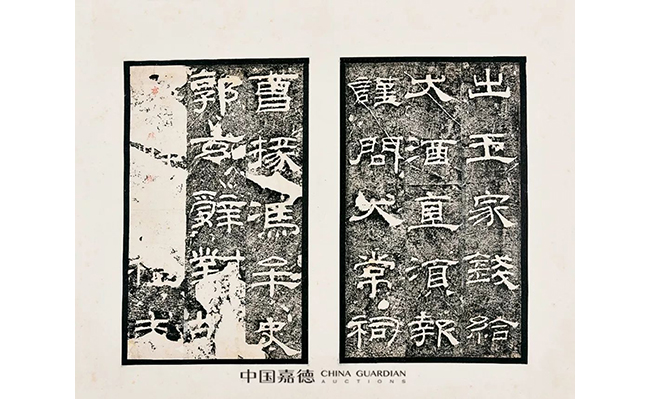 出王家錢給
大酒直須報
謹問大常祠
曹掾馮牟史
郭玄辭對
中国嘉德 CHINA GUARDIAN
AUCTIONS